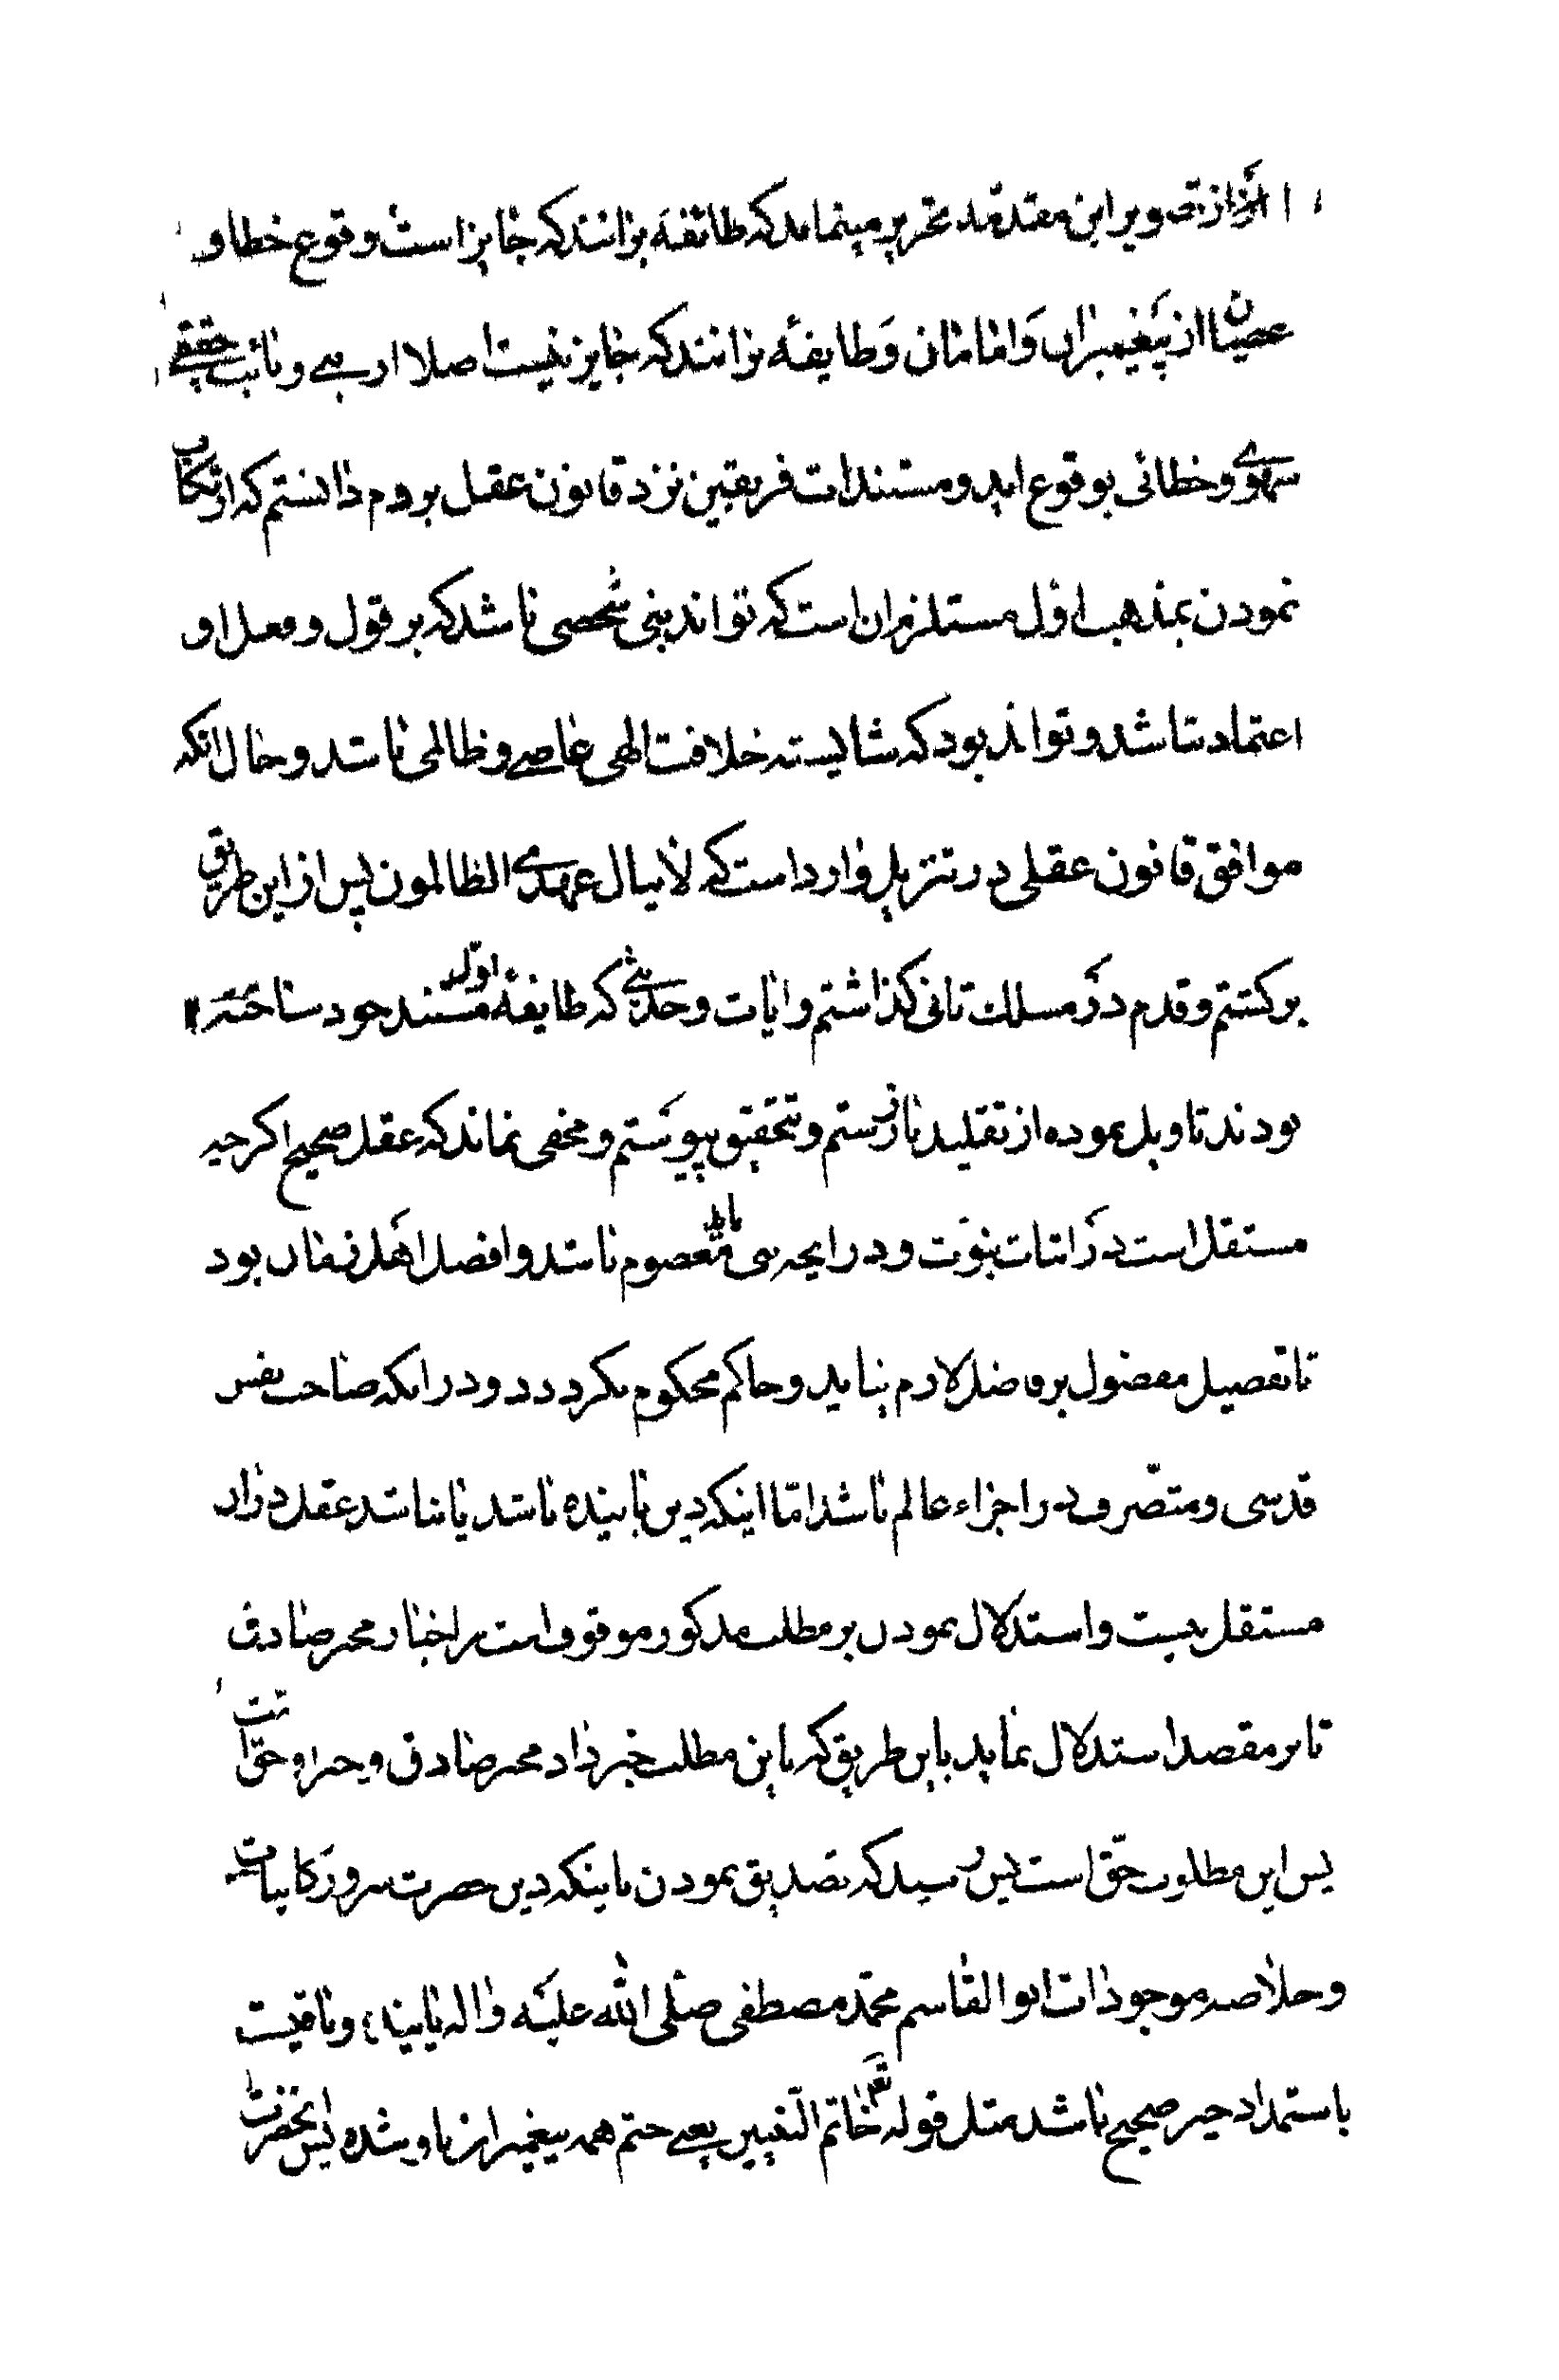 از تصویر این مقدمه تحریر مینماید که طائفهٔ برانند که جایز است وقوع خطا و
عصیان از پیغمبران و امامان و طایفهٔ برانند که جایز نیست اصلا از نبی و نائب حقیقی
سهوی و خطائی بوقوع اید و مستندات فریقین نزد قانون عقل بردم دانستم که ارتکاب
نمودن بمذهب اول مستلزم ان است که تواند نبی شخصی باشد که بر قول و فعل او
اعتماد نباشد و تواند بود که شایسته خلافت الهی عاصی و ظالمی باشد و حال انکه
موافق قانون عقلی در تنزیل وارد است که لا ینال عهدی الظالمون پس از این طریق
برکشتم و قدم در مسلک ثانی کذاشتم و ایات و حدیثی که طایفهٔ اول مستند خود ساخته
بودند تاویل نموده از تقلید باز رستم و بتحقیق پیوستم و مخفی نماند که عقل صحیح اکرچه
مستقل است در اثبات نبوت و در اینکه نبی باید معصوم باشد و افضل اهل زمان بود
تا تفضیل مفضول بر فاضل لازم نیاید و حاکم محکوم نکردد و در انکه صاحب نفس
قدسی و متصرف در اجزاء عالم باشد اما اینکه دین پاینده باشد یا نباشد عقل در ان
مستقل نیست و استدلال نمودن بر مطلب مذکور موقوف است بر اخبار مخبر صادق
تا بر مقصد استدلال نماید باین طریق که باین مطلب خبر داد مخبر صادق و خبر او حق است
پس این مطلوب حق است پس رسید که تصدیق نمودن باینکه دین حضرت سرور کاینات
و خلاصه موجودات ابو القاسم محمد مصطفی صلی الله علیه و اله پاینده و باقیست
باستمداد خبر صحیح باشد مثل قوله تع خاتم النبیین یعنی ختم همه پیغمبران باو شده پس انحضرت